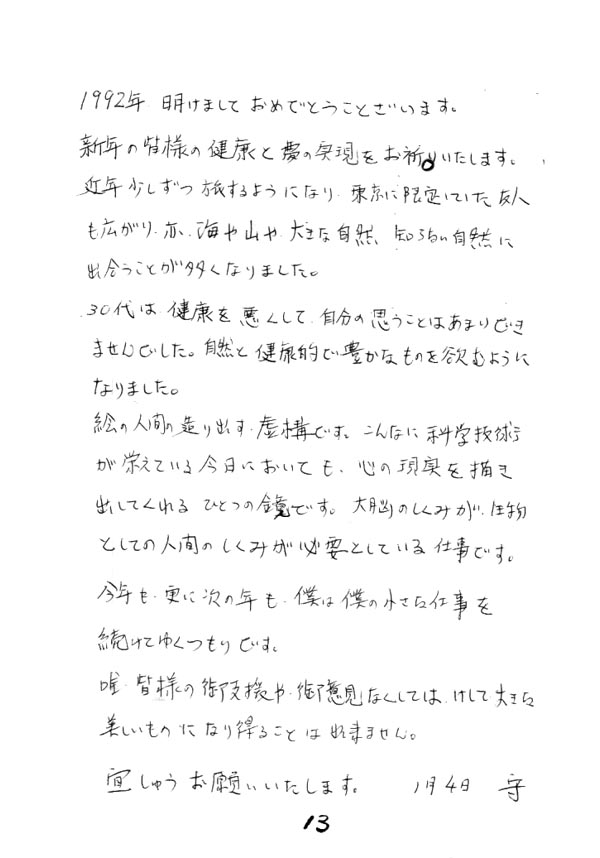 1992年 明けまして おめでとうございます。
新年の皆様の健康と夢の実現をお祈りいたします。
近年少しずつ旅するようになり、東京に限定していた友人
も広がり、亦、海や山や、大きな自然、知らない自然に
出会うことが多くなりました。
30代は、健康を悪くして、自分の思うことはあまりでき
ませんでした。自然と健康的で豊かなものを欲むように
なりました。
絵の人間の造り出す、虚構です。こんなに科学技術
が栄えている今日においても、心の現実を描き
出してくれる ひとつの鏡です。大脳のしくみが、生物
としての人間のしくみが必要としている仕事です。
今年も、更に次の年も、僕は僕の小さな仕事を
続けてゆくつもりです。
唯、皆様の御支援や、御意見なくしては、けして大きな
美しいものになり得ることは出来ません。
宜しゅうお願いいたします。 1月4日 守
13